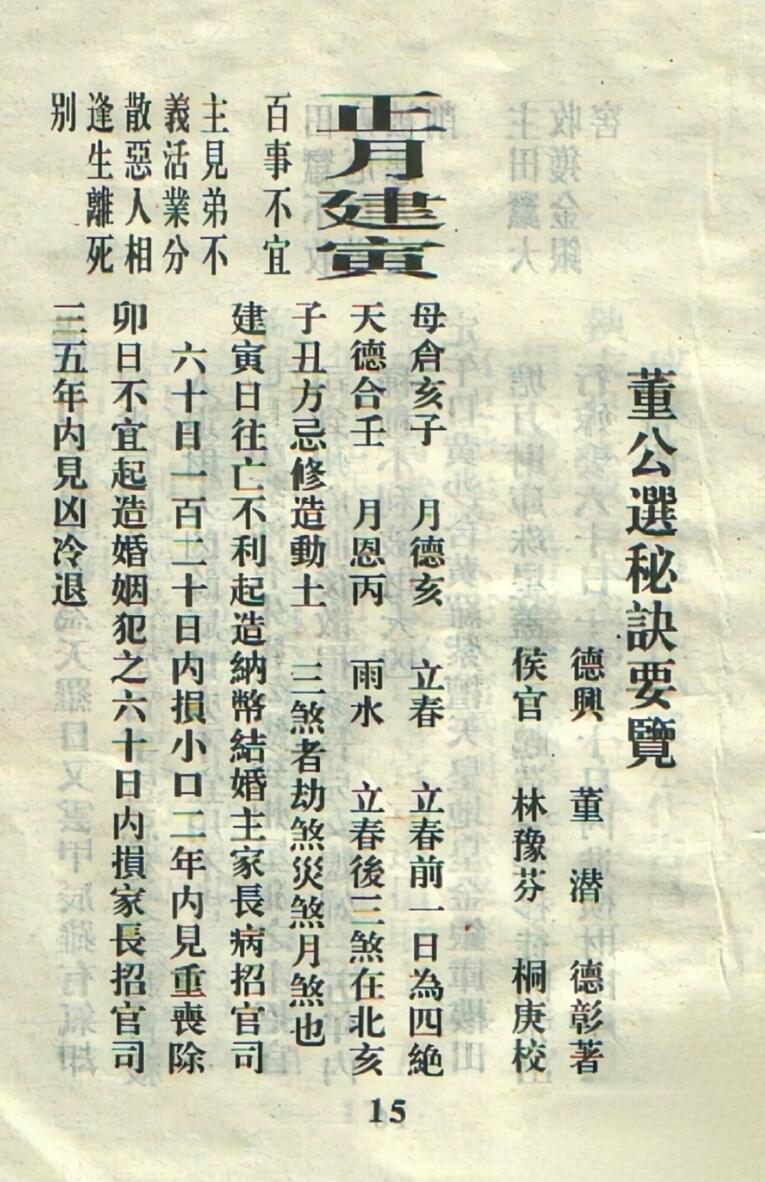 董公選秘訣要覽
德興 董 潜 德彰著
侯官 林豫芬 桐庚校
正月建寅
百事不宜
主見弟不
義活業分
散惡人相
逢生離死
别
母倉亥子 月德亥 立春 立春前一日為四絶
天德合壬 月恩丙 雨水 立春後三煞在北亥
子丑方忌修造動土 三煞者劫煞災煞月煞也
建寅日往亡不利起造納幣結婚主家長病招官司
六十目一百二十日内損小口二年内見重喪除
卯日不宜起造婚姻犯之六十日内損家長招官司
三五年内見凶冷退
15